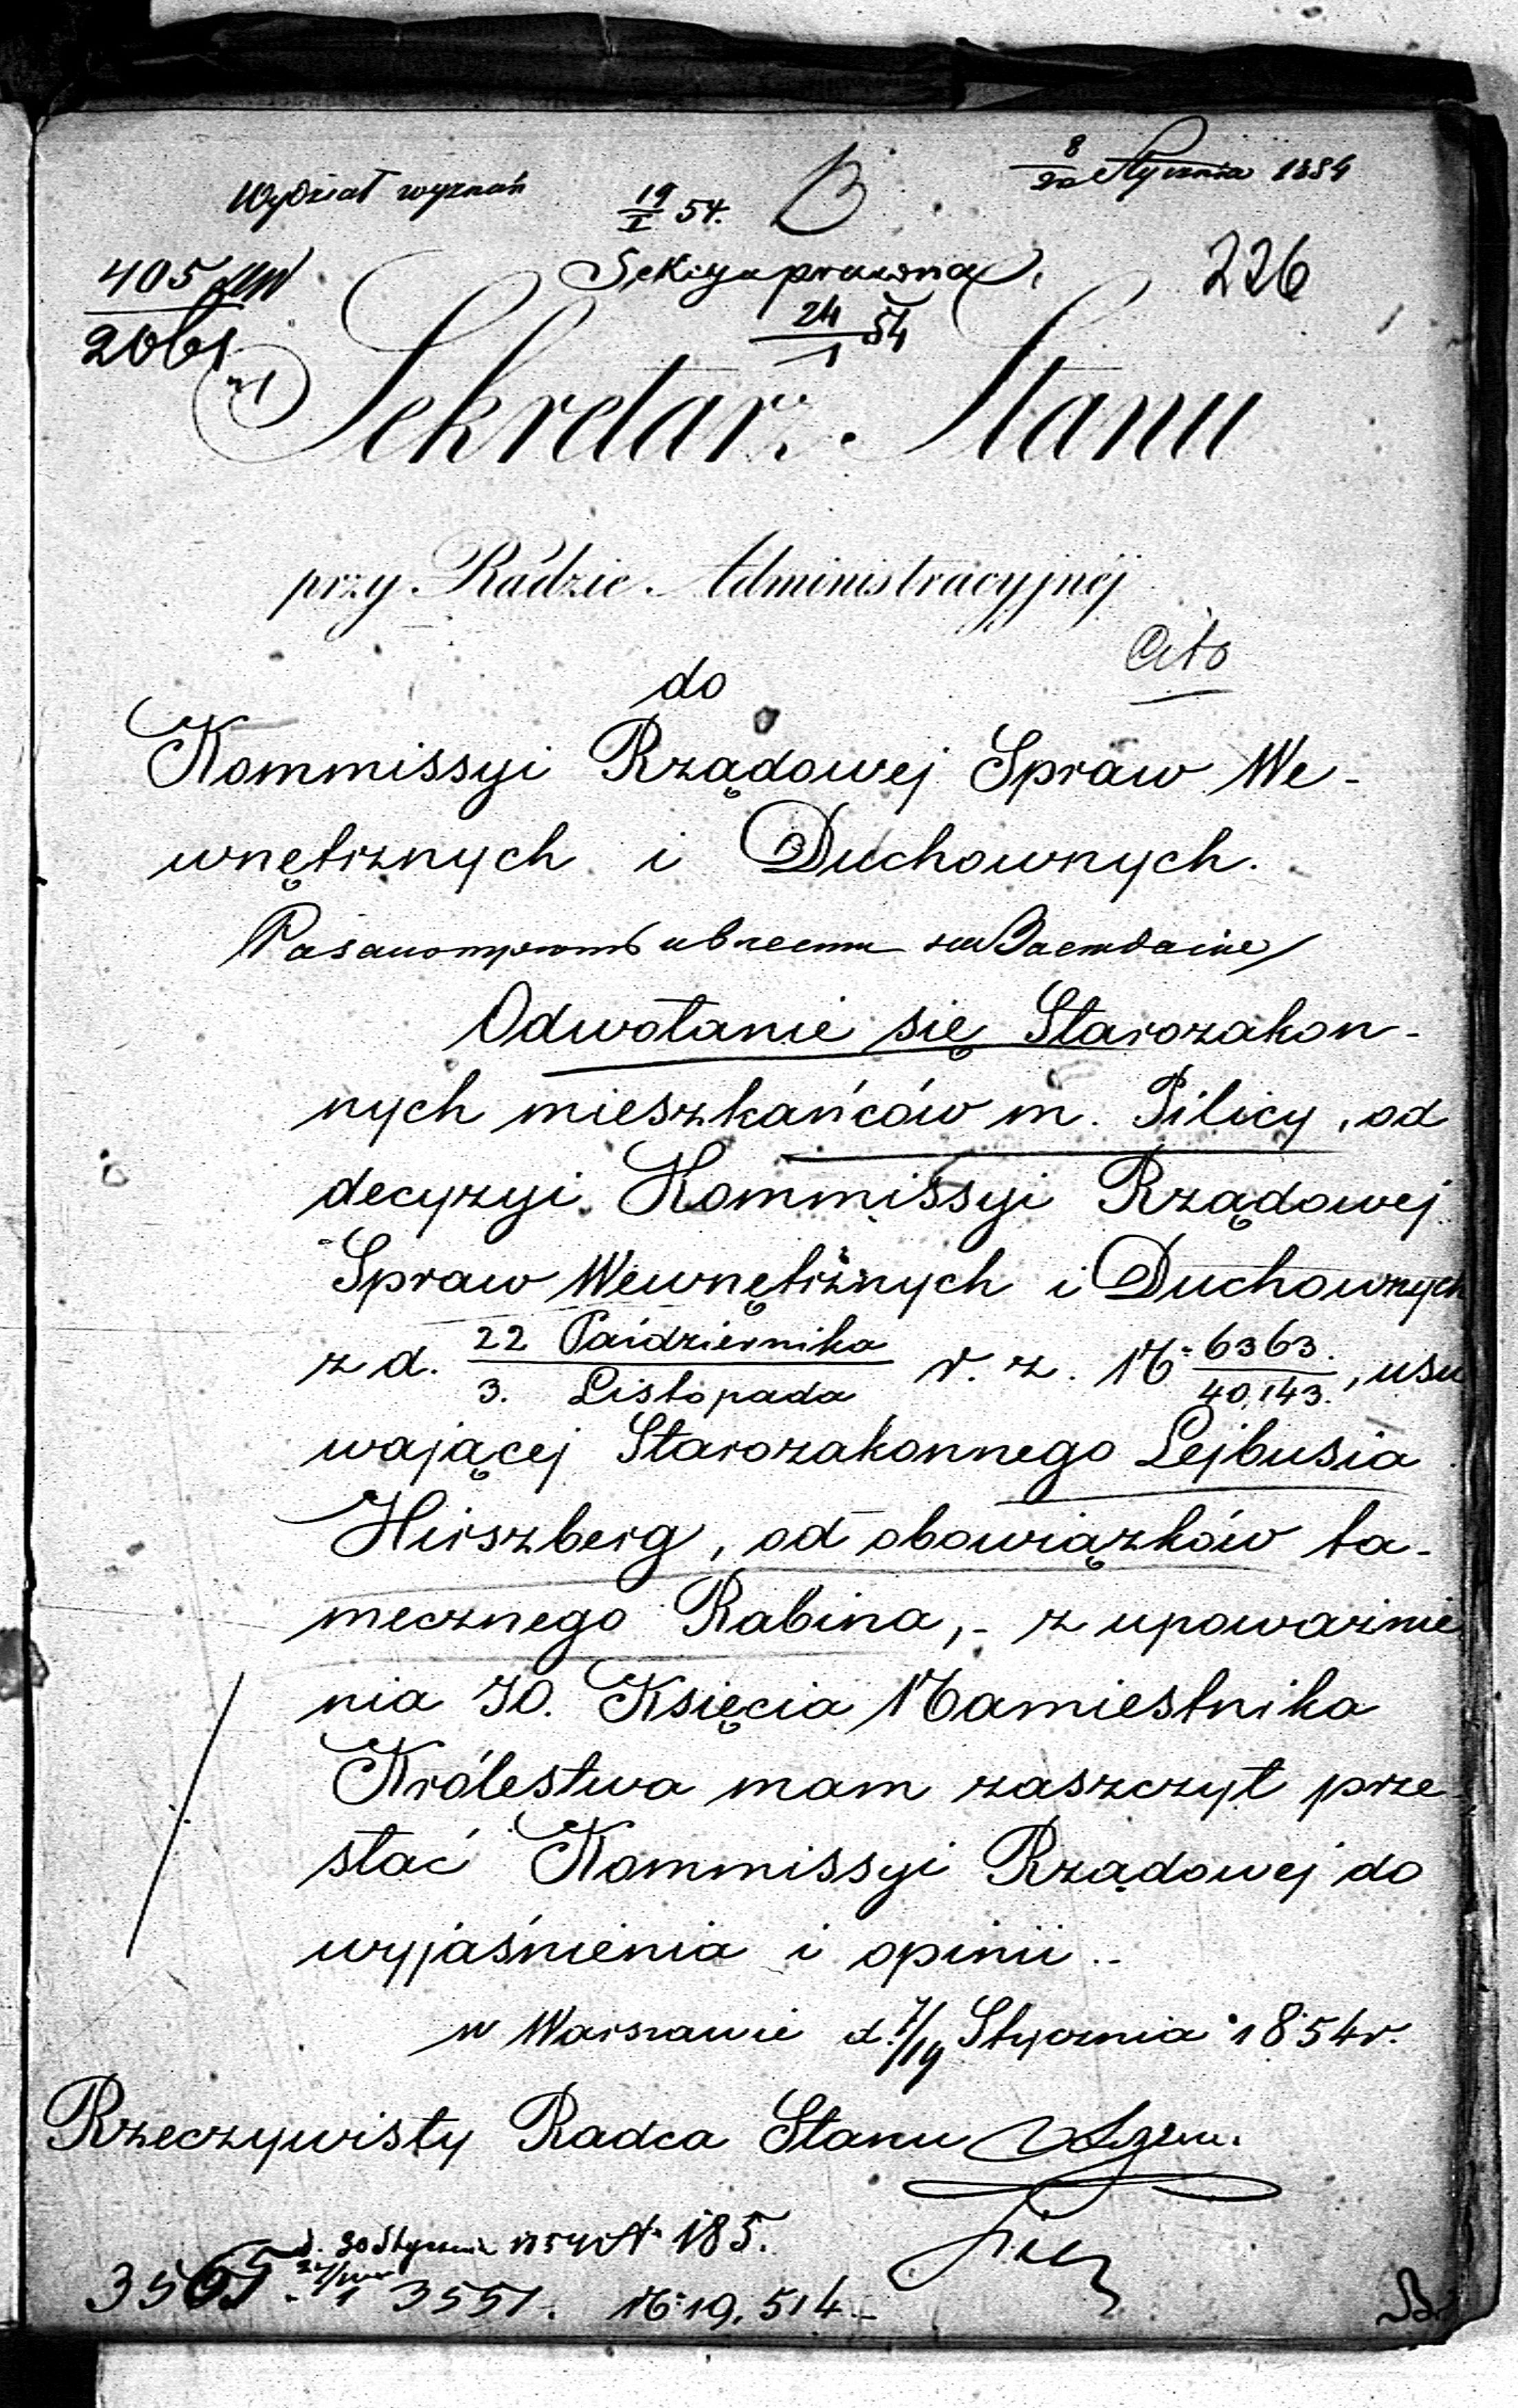 8/20 Stycznia 1854
Wydział wyznań
19/I 54.
B
405
2061
Sekcya prawna
24/1 54
226
Sekretarz Stanu
przy Radzie Administracyjnéj
Cito
do
Kommissyi Rządowej Spraw We-
wnętrznych i Duchownych.
Odwołanie się Starozakon-
nych mieszkańców m. Pilicy, od
decyzyi Kommissyi Rządowej
Spraw Wewnętrznych i Duchownych
z d. 22 Października / 3. Listopada r. z. N: 6363. / 40,143., usu
wającej Starozakonnego Lejbusia
Hirszberg, od obowiązków ta-
mecznego Rabina, - z upoważnie
nia JO. Księcia Namiestnika
Królestwa mam zaszczyt prze-
słać Kommissyi Rządowej do
wyjaśnienia i opinii..
w Warszawie d. 7/19 Stycznia 1854 r.
Rzeczywisty Radca Stanu
d. 30 Stycznia 1854 N: 185.
3565. 3551. N: 19,514